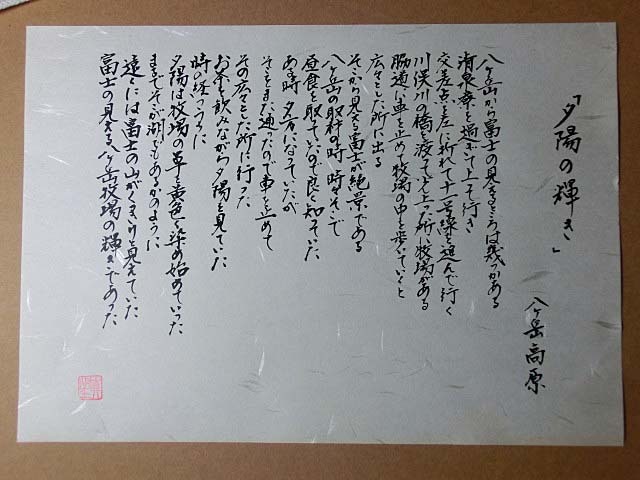 「夕陽の輝き」
八ヶ岳高原
八ヶ岳から富士の見えるところは幾つかある
清泉寮を過ぎて上って行き
交差点を左に折れて十一号線を進んで行く
川俣川の橋を渡って上った所に牧場がある
脇道に車を止めて牧場の中を歩いていくと
広々とした所に出る
そこから見える富士が絶景である
八ヶ岳の取材の時時々そこで
昼食を取っていたので良く知っていた
ある時夕方になっていたが
そこをまた通ったので車を止めて
その広々とした所に行った
お茶を飲みながら夕陽を見ていた
時の経つうちに
夕陽は牧場の草を黄色く染め始めていった
まるでそこが湖でもあるかのように
遠くには富士の山がくっきりと見えていた
富士の見える八ヶ岳牧場の輝きであった